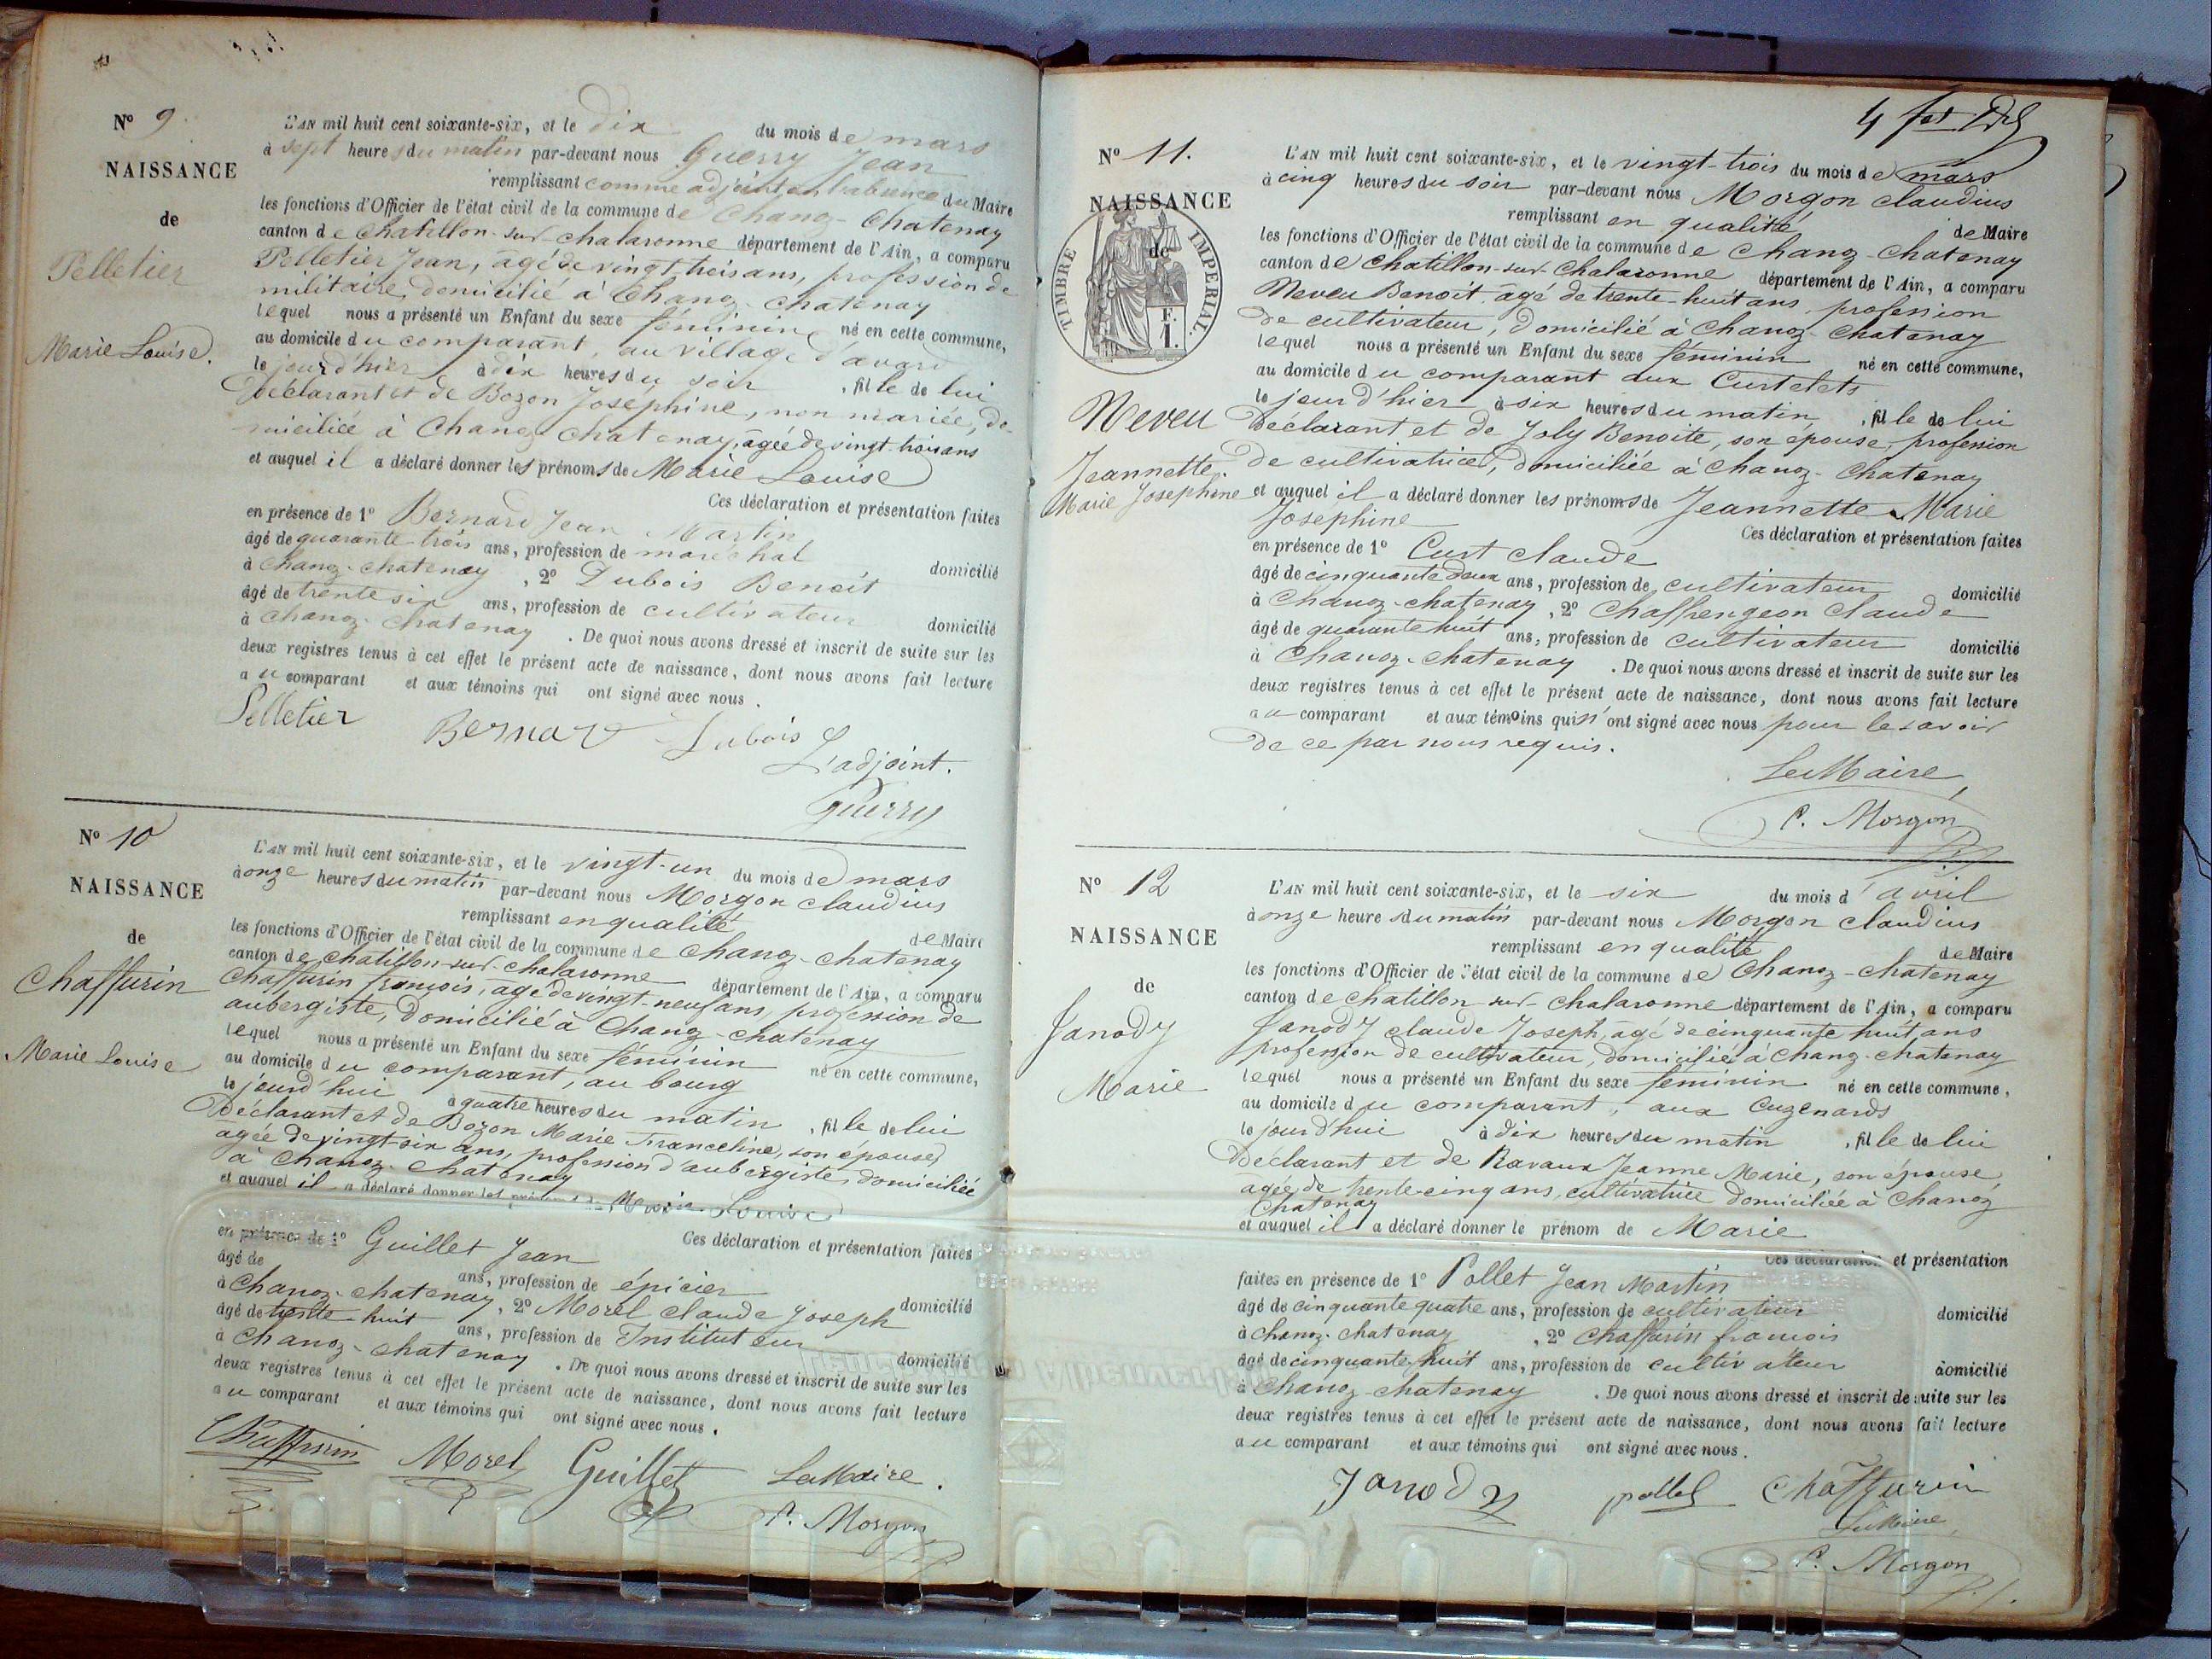 Nº 9.
NAISSANCE
de
Pelletier
Marie Louise.
L'AN mil huit cent soixante-six, et le dix du mois de mars
à sept heures du matin par-devant nous Guerry Jean
remplissant comme adjoint en l'absence du Maire
les fonctions d'Officier de l'état civil de la commune de Chanoz-Chatenay
canton de Chatillon-sur-chalaronne département de l'Ain, a comparu
Pelletier Jean, âgé de vingt trois ans, profession de
militaire, domicilié à Chanoz-Chatenay
lequel nous a présenté un Enfant du sexe féminin né en cette commune,
au domicile du comparant, au village d'avard
le jour d'hier à dix heures du soir, fille de lui
Déclarant et de Bozon Josephine, non mariée, do-
miciliée à Chanoz-Chatenay, âgée de vingt-trois ans
et auquel il a déclaré donner les prénoms de Marie Louise
Ces déclaration et présentation faites
en présence de 1º Bernard Jean Martin
âgé de quarante-trois ans, profession de maréchal domicilié
à Chanoz-Chatenay, 2º Dubois Benoit
âgé de trente six ans, profession de cultivateur domicilié
à Chanoz-Chatenay. De quoi nous avons dressé et inscrit de suite sur les
deux registres tenus à cet effet le présent acte de naissance, dont nous avons fait lecture
au comparant et aux témoins qui ont signé avec nous.
Pelletier Bernard Dubois
L'adjoint.
Guerry
Nº 10
NAISSANCE
de
Chaffurin
Marie Louise
L'AN mil huit cent soixante-six, et le vingt-un du mois de mars
à onze heures du matin par-devant nous Morgon Claudius
remplissant en qualité de Maire
les fonctions d'Officier de l'état civil de la commune de Chanoz-Chatenay
canton de Chatillon-sur-chalaronne département de l'Ain, a comparu
Chaffurin françois, âgé de vingt-neuf ans, profession de
aubergiste, domicilié à Chanoz-Chatenay
lequel nous a présenté un Enfant du sexe féminin né en cette commune,
au domicile du comparant, au bourg
le jourd'hui à quatre heures du matin, fille de lui
Déclarant et de Bozon Marie Franceline, son épouse,
âgée de vingt-six ans, profession d'aubergiste, domiciliée
à Chanoz-Chatenay
et auquel il a déclaré donner les prénoms de Marie Louise
Ces déclaration et présentation faites
en présence de 1º Guillet Jean
âgé de ans, profession de épicier domicilié
à Chanoz-Chatenay, 2º Morel Claude Joseph
âgé de trente-huit ans, profession de Instituteur domicilié
à Chanoz-Chatenay. De quoi nous avons dressé et inscrit de suite sur les
deux registres tenus à cet effet le présent acte de naissance, dont nous avons fait lecture
au comparant et aux témoins qui ont signé avec nous.
Chaffurin Morel Guillet Le Maire.
C. Morgon
Nº 11.
NAISSANCE
de
TIMBRE IMPERIAL
F.
1.
Neveu
Jeannette
Marie Josephine
L'AN mil huit cent soixante-six, et le vingt-trois du mois de mars
à cinq heures du soir par-devant nous Morgon Claudius
remplissant en qualité de Maire
les fonctions d'Officier de l'état civil de la commune de Chanoz-Chatenay
canton de Chatillon-sur-Chalaronne département de l'Ain, a comparu
Neveu Benoit, âgé de trente-huit ans, profession
de cultivateur, domicilié à Chanoz-Chatenay
lequel nous a présenté un Enfant du sexe féminin né en cette commune,
au domicile du comparant aux Curtelets
le jour d'hier à six heures du matin, fille de lui
Déclarant et de Joly Benoite, son épouse, profession
de cultivatrice, domiciliée à Chanoz-Chatenay
et auquel il a déclaré donner les prénoms de Jeannette Marie
Josephine Ces déclaration et présentation faites
en présence de 1º Curt Claude
âgé de cinquante deux ans, profession de cultivateur domicilié
à Chanoz-Chatenay, 2º Chaffrengeon Claude
âgé de quarante huit ans, profession de cultivateur domicilié
à Chanoz-Chatenay. De quoi nous avons dressé et inscrit de suite sur les
deux registres tenus à cet effet le présent acte de naissance, dont nous avons fait lecture
au comparant et aux témoins qui n'ont signé avec nous pour le savoir
de ce par nous requis.
Le Maire,
C. Morgon
Nº 12
NAISSANCE
de
Janody
Marie
L'AN mil huit cent soixante-six, et le six du mois d'avril
à onze heures du matin par-devant nous Morgon Claudius
remplissant en qualité de Maire
les fonctions d'Officier de l'état civil de la commune de Chanoz-Chatenay
canton de Chatillon-sur-Chalaronne département de l'Ain, a comparu
Janody Claude Joseph, âgé de cinquante huit ans
profession de cultivateur, domicilié à Chanoz-Chatenay
lequel nous a présenté un Enfant du sexe féminin né en cette commune,
au domicile du comparant, aux Cuzenards
le jourd'hui à dix heures du matin, fille de lui
Déclarant et de Ravaux Jeanne Marie, son épouse,
âgée de trente-cinq ans, cultivatrice domiciliée à Chanoz
Chatenay
et auquel il a déclaré donner le prénom de Marie
Ces déclaration et présentation
faites en présence de 1º Pollet Jean Martin
âgé de cinquante quatre ans, profession de cultivateur domicilié
à Chanoz-Chatenay, 2º Chaffurin françois
âgé de cinquante-huit ans, profession de cultivateur domicilié
à Chanoz-Chatenay. De quoi nous avons dressé et inscrit de suite sur les
deux registres tenus à cet effet le présent acte de naissance, dont nous avons fait lecture
au comparant et aux témoins qui ont signé avec nous.
Janody pollet Chaffurin
Le Maire,
C. Morgon